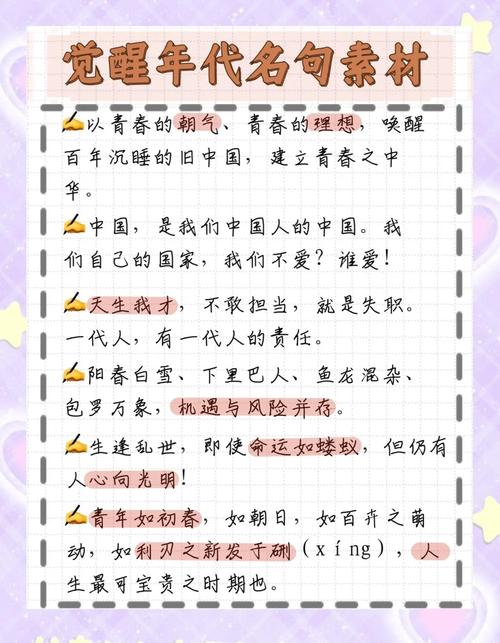 觉醒年代名句素材
✍以青春的朝气、青春的理想，唤醒
百年沉睡的旧中国，建立青春之中
华。
✍中国，是我们中国人的中国。我
们自己的国家，我们不爱？谁爱！
✍天生我才，不敢担当，就是失职。
一代人，有一代人的责任。
✍阳春白雪、下里巴人、鱼龙混杂、
包罗万象，机遇与风险并存。
✍生逢乱世，即使命运如蝼蚁，但仍有
人心向光明！
✍青年如初春，如朝日，如百卉之萌
动，如利刃之新发于硎（xíng），人
生最可宝贵之时期也。